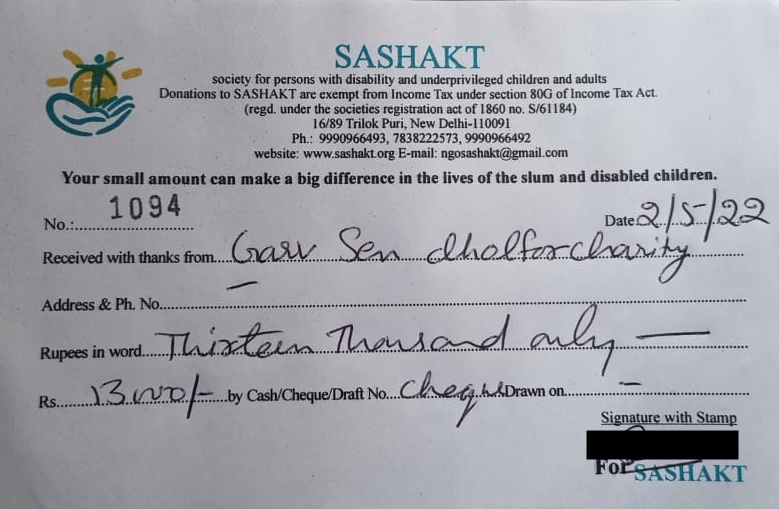 SASHAKT
society for persons with disability and underprivileged children and adults
Donations to SASHAKT are exempt from Income Tax under section 80G of Income Tax Act.
(regd. under the societies registration act of 1860 no. S/61184)
16/89 Trilok Puri, New Delhi-110091
Ph.: 9990966493, 7838222573, 9990966492
website: www.sashakt.org E-mail: ngosashakt@gmail.com
Your small amount can make a big difference in the lives of the slum and disabled children.
No.: 1094 Date 2/5/22
Received with thanks from Garv Sen dholforcharity
Address & Ph. No. —
Rupees in word Thirteen Thousand only —
Rs. 13000/- by Cash/Cheque/Draft No. Cheque Drawn on —
Signature with Stamp
For SASHAKT